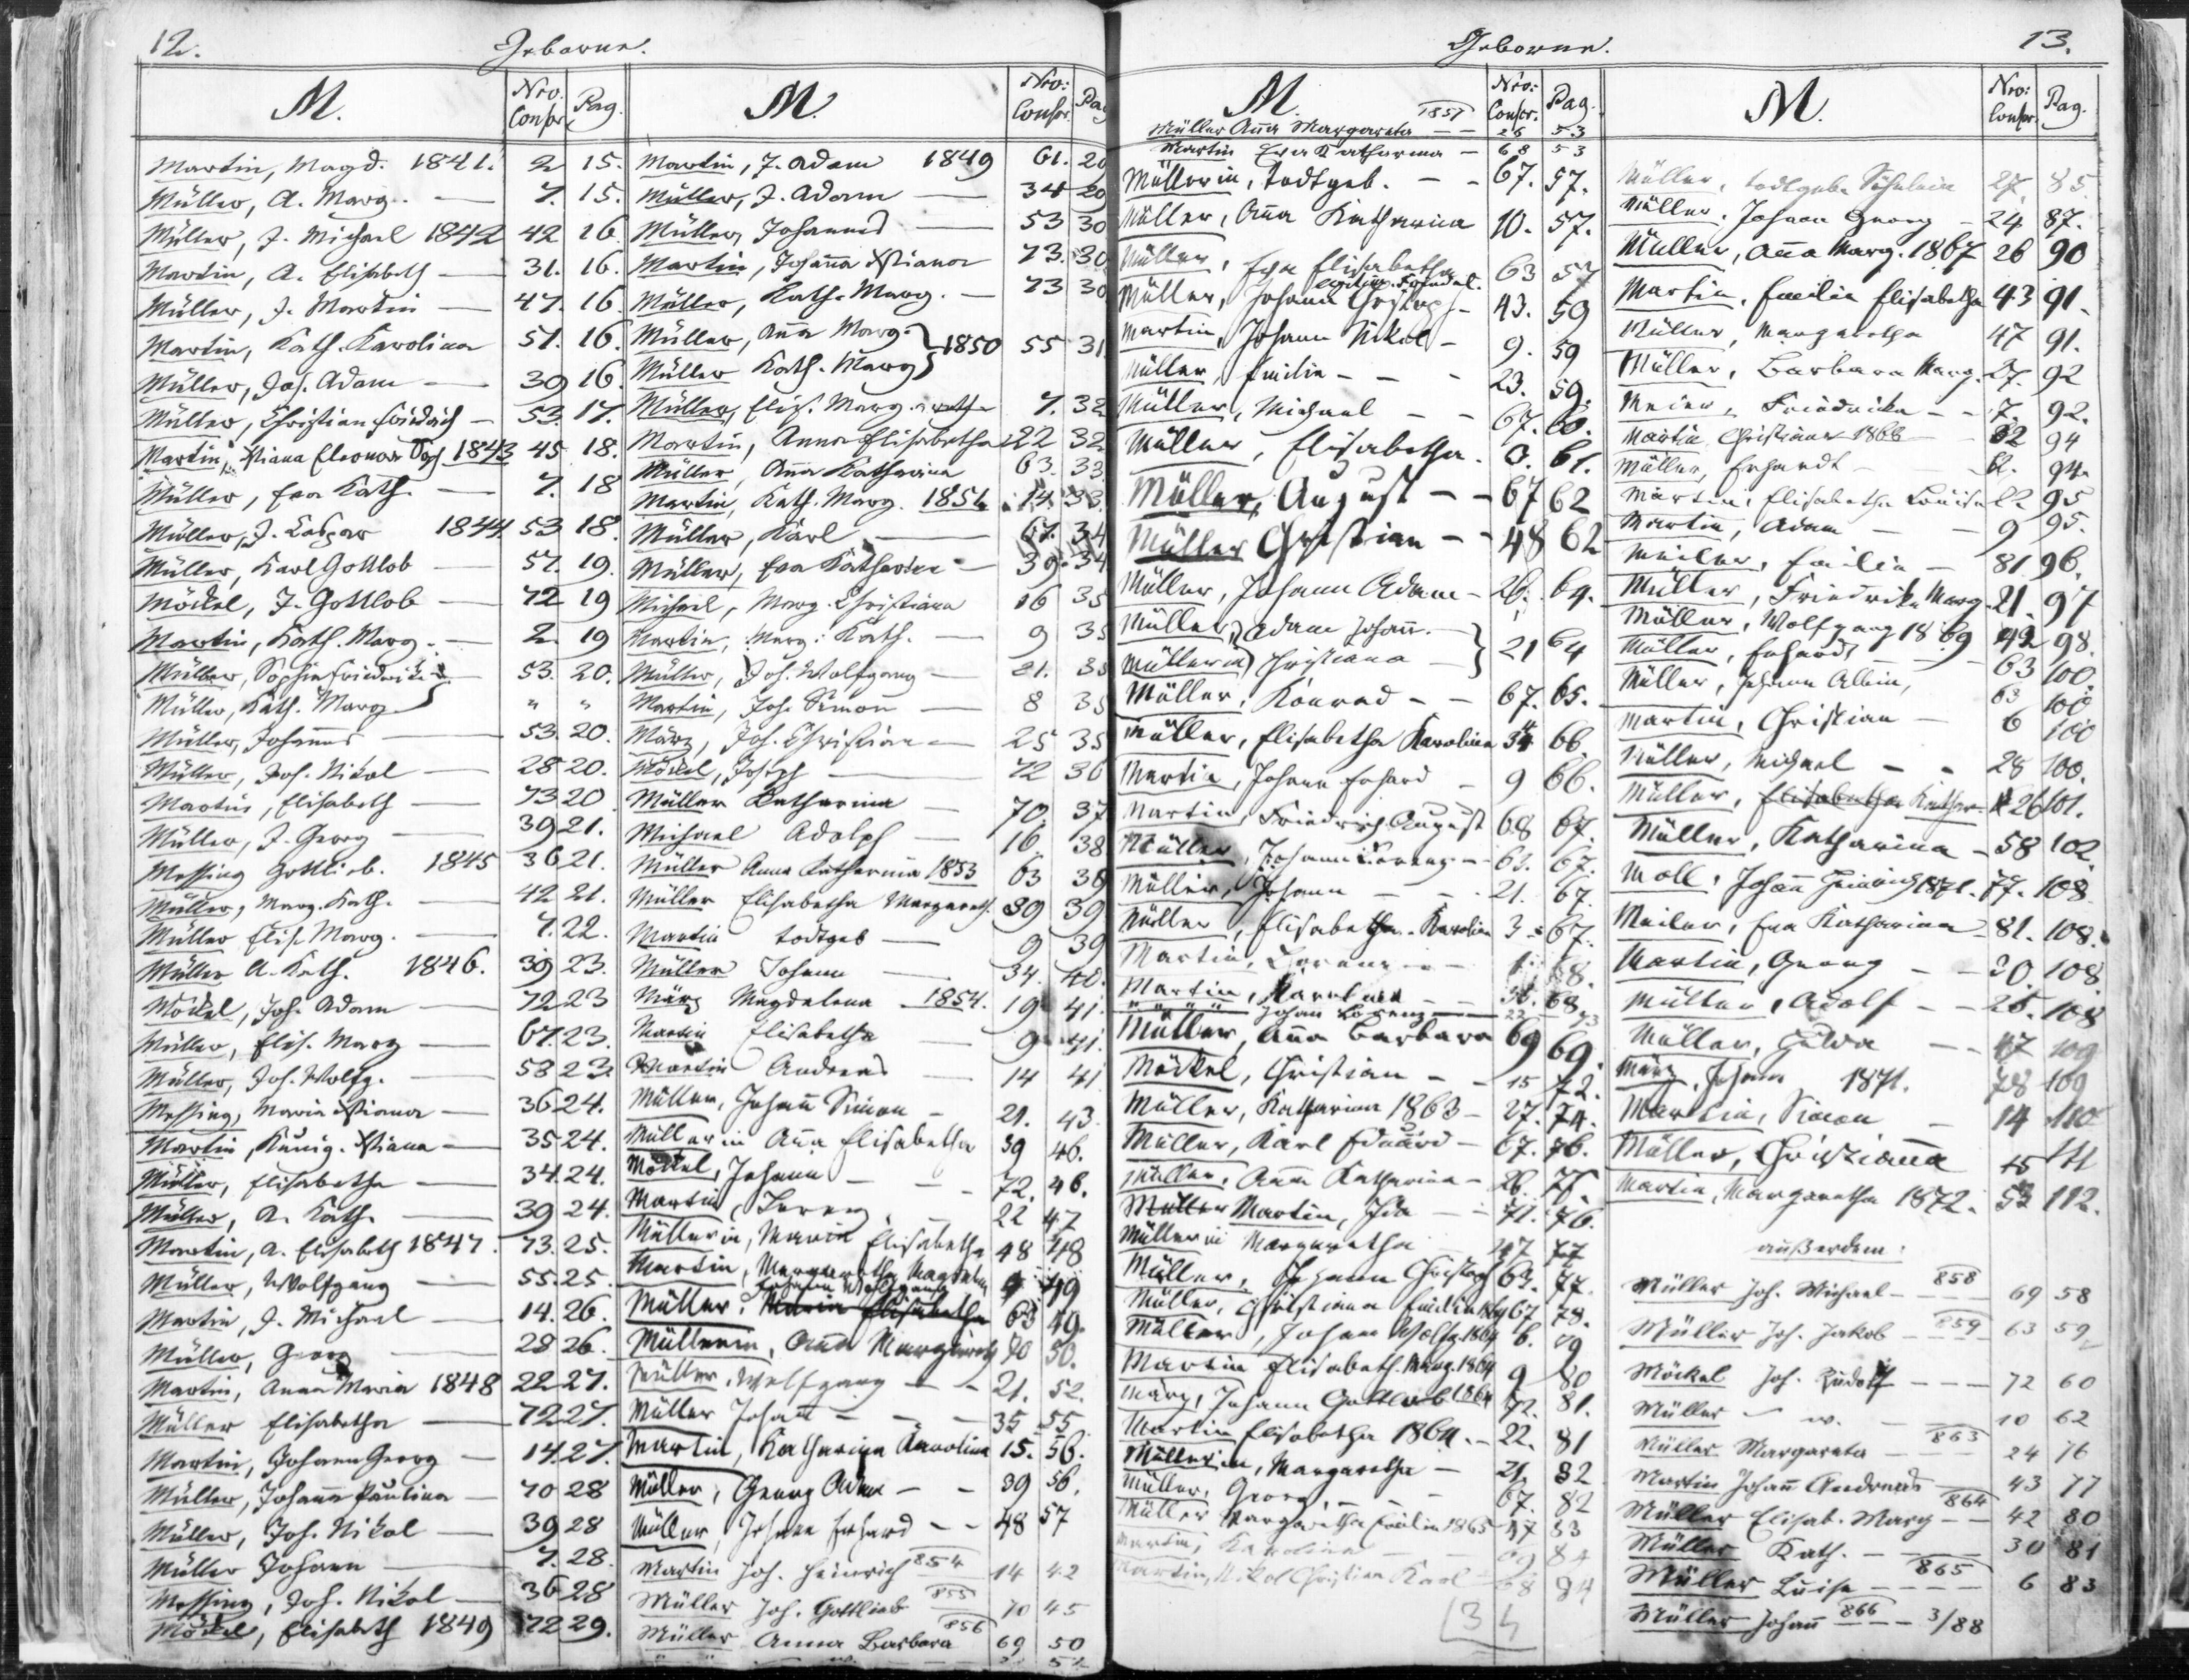 12. Geborne.
M. Nro. Conscr. Pag.
Martin, Magd. 1841. 2 15.
Müller, A. Marg. — 7. 15.
Müller, J. Michael 1842 42 16
Martin, A. Elisabeth — 31. 16.
Müller, J. Martin — 47. 16
Martin, Kath. Karolina 51. 16.
Müller, Joh. Adam — 39 16
Müller, Christian Friedrich — 53. 17.
Martin, Xstiana Eleonor Soph 1843 45 18.
Müller, Eva Kath. — 7. 18
Müller, J. Caspar 1844. 53 18.
Müller, Karl Gottlob — 57. 19.
Möckel, J. Gottlob — 72 19
Martin, Kath. Marg. — 2. 19
Müller, Sophia Friedrike 53. 20.
Müller, Kath. Marg. " "
Müller, Johannes — 53. 20.
Müller, Joh. Nikol — 28 20.
Martin, Elisabeth — 73 20
Müller, J. Georg — 39 21.
Messing Gottlieb. 1845 36 21.
Müller, Marg. Kath. — 42 21.
Müller Elis. Marg. — 7. 22.
Müller A. Kath. 1846. 39 23.
Möckel, Joh. Adam — 72 23
Müller, Elis. Marg — 67. 23.
Müller, Joh. Wolfg. — 58 23.
Messing, Maria Xstiana — 36 24.
Martin, Kunig. Xstiana — 35 24.
Müller, Elisabetha — 34. 24.
Müller, A. Kath. — 39 24.
Martin, A. Elisabeth 1847. 73. 25.
Müller, Wolfgang — 55. 25
Martin, J. Michael — 14. 26.
Müller, Georg — 28 26.
Martin, Anna Maria 1848 22 27.
Müller Elisabetha — 72 27.
Martin, Johann Georg — 14. 27.
Müller, Johanna Paulina — 70 28
Müller, Joh. Nikol — 39 28
Müller Johann — 7. 28.
Messing, Joh. Nikol — 36 28
Möckel, Elisabeth 1849 72 29.
M. Nro: Conscr. Pag
Martin, J. Adam 1849 61. 29
Müller, J. Adam — 34 29
Müller, Johannes — 53 30
Martin, Johanna Xstiana 73. 30
Müller, Kath. Marg. — 73 30
Müller, Anna Marg.
Müller Kath. Marg } 1850 55 31
Müller, Elis. Marg. 7. 32
Martin, Anna Elisabetha 22 32
Müller, Anna Katharina 63. 33
Martin, Kath. Marg. 14 33.
Müller, Karl — 67. 34
Müller, Eva Katharina — 39. 34
Michael, Marg. Christiana 16 35
Martin, Marg. Kath. — 9 35
Müller, Joh. Wolfgang — 21. 35
Martin, Joh. Simon — 8 35
März, Joh. Christian — 25 35
Möckel, Joseph — 72 36
Müller Katharina — 70. 37
Michael Adolph — 16. 38
Müller Anna Katharina 1853 63 38
Müller Elisabetha Margareth. 39 39
Martin todtgeb — 9 39
Müller Johann — 34. 40.
März Magdalena 1854. 19 41.
Martin Elisabetha — 9 41.
Martin Andreas — 14 41
Müller, Johann Simon — 21. 43.
Müllerin Anna Elisabetha 39 46.
Möckel, Johann — 72. 46.
Martin, Lorenz — 22 47
Müllerin, Maria Elisabetha 48 48
Martin, Margaretha Magdalena 9 49
Johann Wolfgang
Müller, Maria Elisabetha 63 49.
Müllerin, Anna Margareth 70 50.
Müller, Wolfgang — - 21. 52.
Müller Johann — - 35 55.
Martin, Katharina Karolina 15. 56.
Müller, Georg Adam — - 39 56.
Müller, Johann Erhard — - 48 57
Martin Joh. Heinrich 854 14 42
Müller Joh. Gottlieb 855 70 45
Müller Anna Barbara 856 69 50
Geborne. 13.
M. Nro: Conscr. Pag.
Müller Anna Margareta 1857 — 26 53
Martin Eva Katharina — 68 53
Müllerin, todtgeb. — - 67. 57.
Müller, Anna Katharina 10. 57.
Müller, Eva Elisabetha 63 57
Müller, Johann Christoph - 43. 59
Martin, Johann Nikol - 9. 59
Müller, Emilie — - 23. 59.
Müller, Michael — - 67. 60.
Müller, Elisabetha. 61.
Müller, August — - 67 62
Müller Christian — - 48 62
Müller, Johann Adam - 26. 64.
Müller, Adam Johann. —
Müllerin, Christiana — } 21 64
Müller, Konrad — - 67. 65.
Müller, Elisabetha Karolina 34 66.
Martin, Johann Erhard - 9 66.
Martin, Friedrich August 68 67.
Müller, Johann Lorenz — 63. 67.
Müller, Johann — - 21. 67.
Müller, Elisabetha Karolin 67.
Martin, Lorenz — - 68.
Martin, 68
Johan Lorenz — 22
Müller, Anna Barbara 69 69.
Möckel, Christian — - 15 72.
Müller, Katharina 1863 - 27. 74.
Müller, Karl Eduard — 67. 76.
Müller, Anna Katharina — 26. 76.
Müller Martin, Ida — 71. 76.
Müllerin Margaretha 47 77
Müller, Johann Christoph 63. 77.
Müller, Christiana Emilie 1864 67. 78.
Müller, Johann Wolfg. 1864 6. 79
Martin Elisabeth. Marg. 1864 9 80
März, Johann Gottlob 1864 72. 81.
Martin Elisabetha 1864. — 22. 81
Müllerin, Margaretha — 21. 82
Müller, Georg, — - 67. 82
Müller Margaretha Emilie 1865 47 83
Martin, Karolina — 69 84
Martin, Nikol Christian Karl 68 84
M. Nro: Conscr. Pag.
Müller, todtgeb. Söhnlein 27. 85
Müller, Johann Georg — 24 87.
Müller, Anna Marg. 1867 26 90
Martin, Emilie Elisabetha 43 91.
Müller, Margaretha 47 91.
Müller, Barbara Marg. 27. 92
Meier, Friedrika — - 7. 92.
Martin, Christiana 1868 — 94
Müller, Erhardt — 94.
Martin, Elisabetha Louisa 22 95
Martin, Adam — - 9 95.
Meiler, Emilie — 81 96.
Müller, Friedrika Marg. 21. 97
Müller, Wolfgang 1869 42 98.
Müller, Erhard, — 63 100.
Müller, Johann Albin, 63 100
Martin, Christian — 6 100
Müller, Michael — - 28 100.
Müller, Elisabetha Kathar. 26 101.
Müller, Katharina - 58 102.
Moll, Johann Heinrich 1871. 77. 108.
Meiler, Eva Katharina - 81. 108.
Martin, Georg — 108
Müller, Adolf — - 26. 108
Müller, — - 47 109
März, Johann 1871. 78 109
Martin, Simon — 14 110
Müller, Christiana 15 111
Martin, Margaretha 1872. 53 112.
außerdem:
Müller Joh. Michael — 858 69 58
Müller Joh. Jakob — 859 63 59
Möckel Joh. Rudolf — — 72 60
Müller — 10 62
Müller Margareta — 863 24 76
Martin Johann Andreas 43 77
Müller Elisab. Marg — 864 42 80
Müller Kath. — 30 81
Müller Luise — 865 6 83
Müller Johann 866 — 3/88